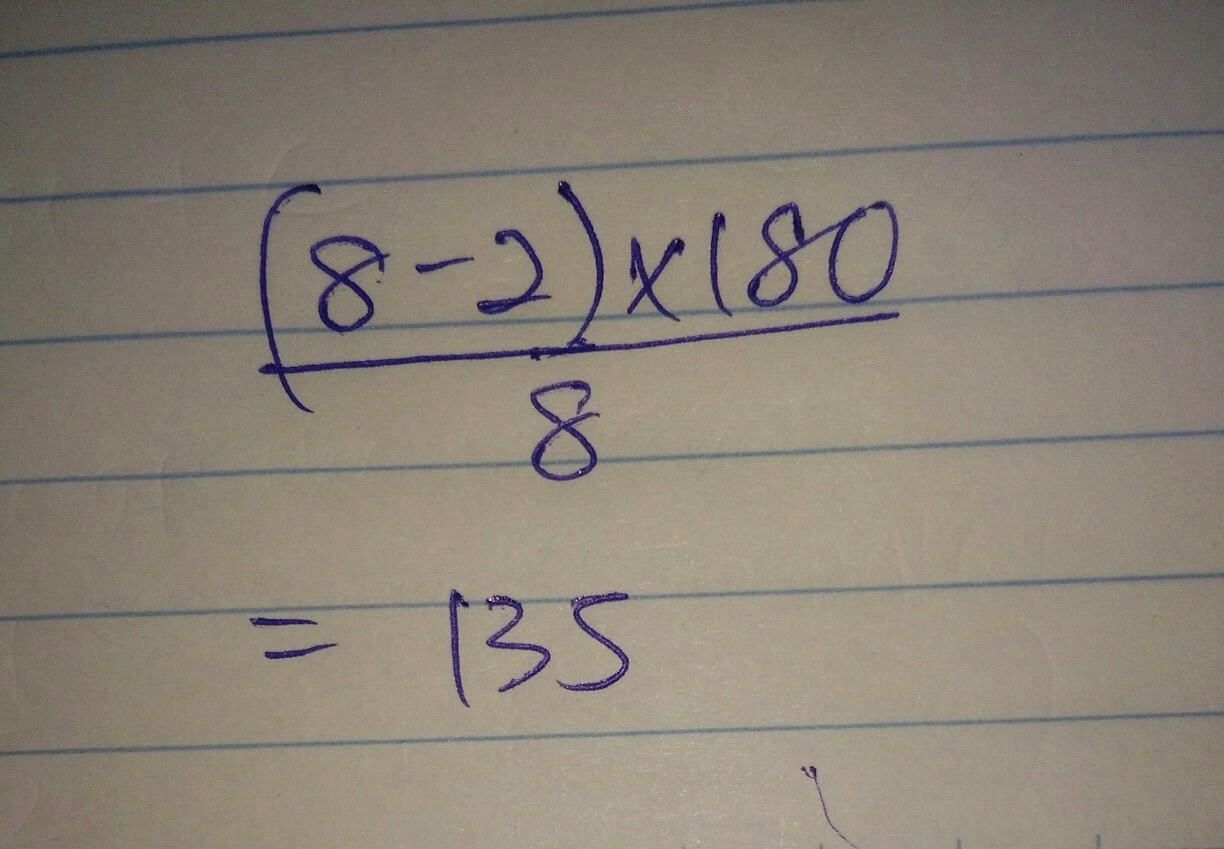 (8-2)x180
8
= 135